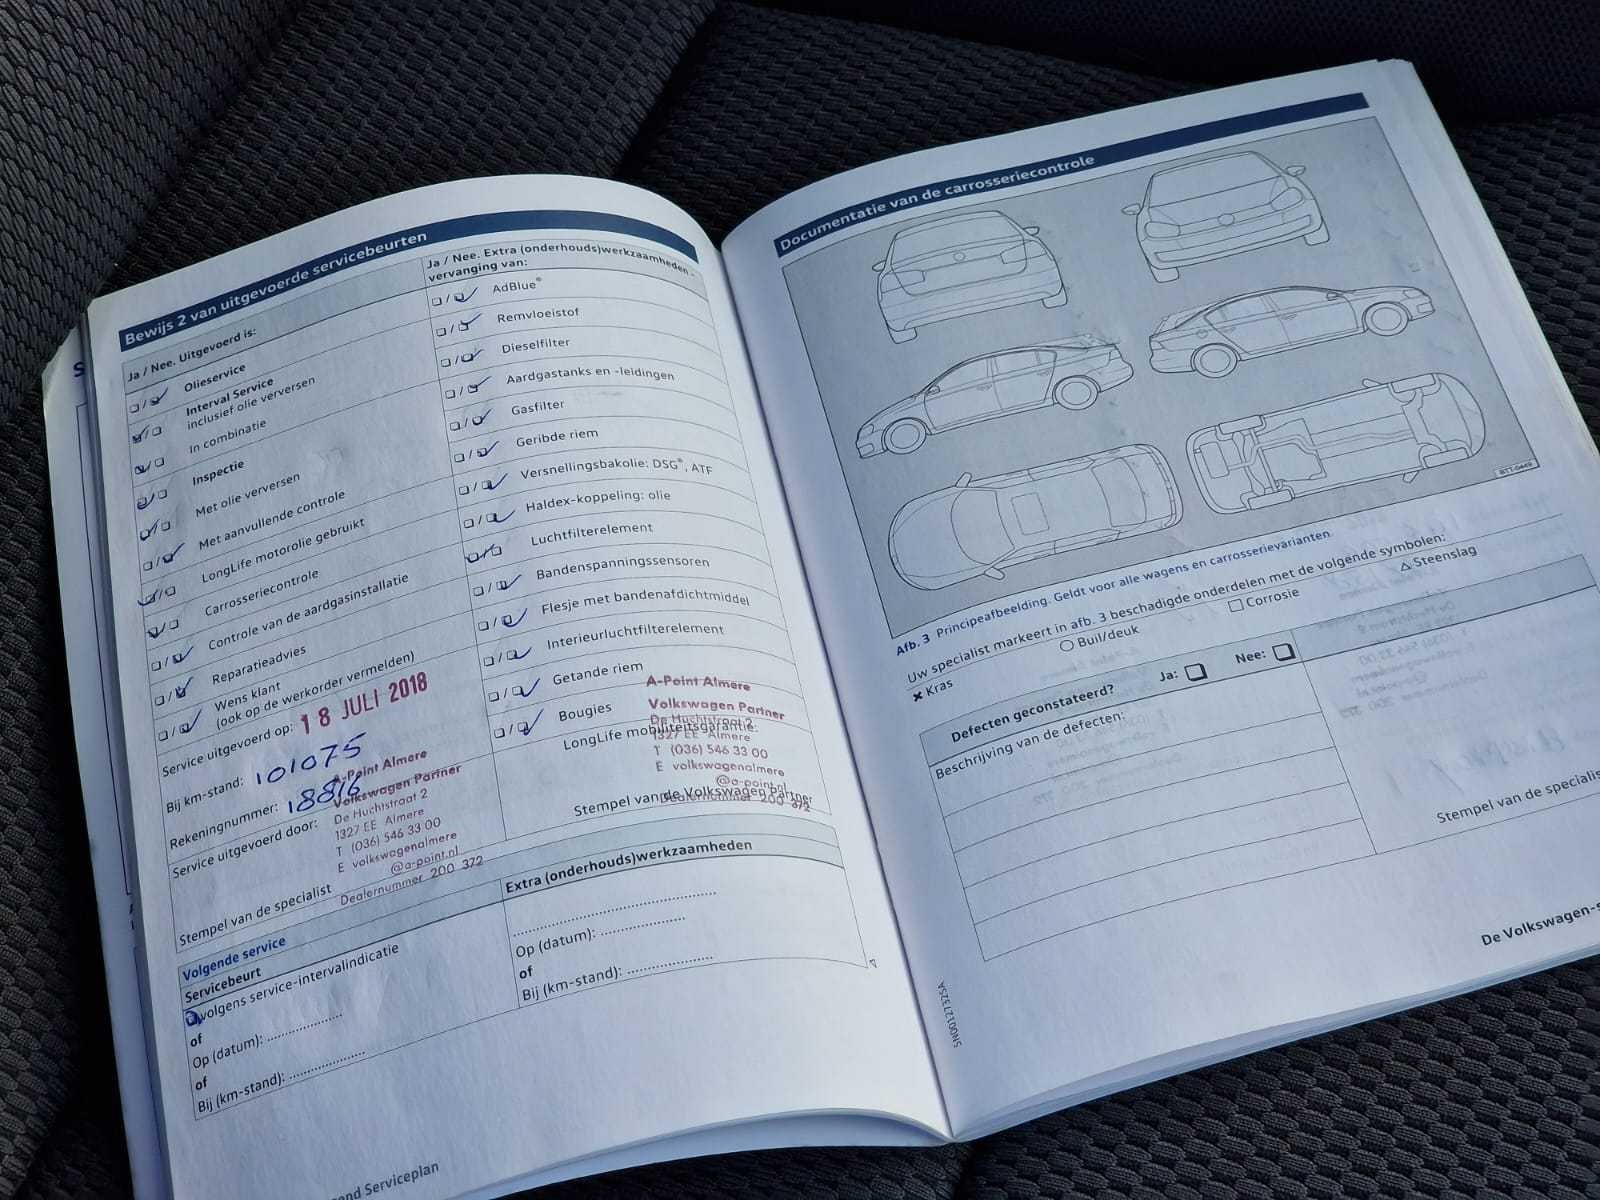 Bewijs 2 van uitgevoerde servicebeurten
Ja / Nee. Uitgevoerd is:
Olieservice
Interval Service
inclusief olie verversen
In combinatie
Inspectie
Met olie verversen
Met aanvullende controle
LongLife motorolie gebruikt
Carrosseriecontrole
Controle van de aardgasinstallatie
Reparatieadvies
Wens klant
(ook op de werkorder vermelden)
Service uitgevoerd op: 18 JULI 2018
Bij km-stand: 101075
Rekeningnummer: 18816
Service uitgevoerd door:
A-Point Almere
Volkswagen Partner
De Huchtstraat 2
1327 EE Almere
T (036) 546 33 00
E volkswagenalmere
@a-point.nl
Dealernummer 200 372
Stempel van de specialist
Ja / Nee. Extra (onderhouds)werkzaamheden -
vervanging van:
AdBlue®
Remvloeistof
Dieselfilter
Aardgastanks en -leidingen
Gasfilter
Geribde riem
Versnellingsbakolie: DSG®, ATF
Haldex-koppeling: olie
Luchtfilterelement
Bandenspanningssensoren
Flesje met bandenafdichtmiddel
Interieurluchtfilterelement
Getande riem
Bougies
LongLife mobiliteitsgarantie:
A-Point Almere
Volkswagen Partner
De Huchtstraat 2
1327 EE Almere
T (036) 546 33 00
E volkswagenalmere
@a-point.nl
Dealernummer 200 372
Stempel van de Volkswagen Partner
Volgende service
Servicebeurt
volgens service-intervalindicatie
of
Op (datum): ....................
of
Bij (km-stand): ....................
Extra (onderhouds)werkzaamheden
Op (datum): ....................
of
Bij (km-stand): ....................
Serviceplan
Documentatie van de carrosseriecontrole
BTT-0449
Afb. 3 Principeafbeelding. Geldt voor alle wagens en carrosserievarianten.
Uw specialist markeert in afb. 3 beschadigde onderdelen met de volgende symbolen:
✖ Kras ○ Buil/deuk □ Corrosie △ Steenslag
Defecten geconstateerd? Ja: Nee:
Beschrijving van de defecten:
Stempel van de specialis
De Volkswagen-s
SN00127325A